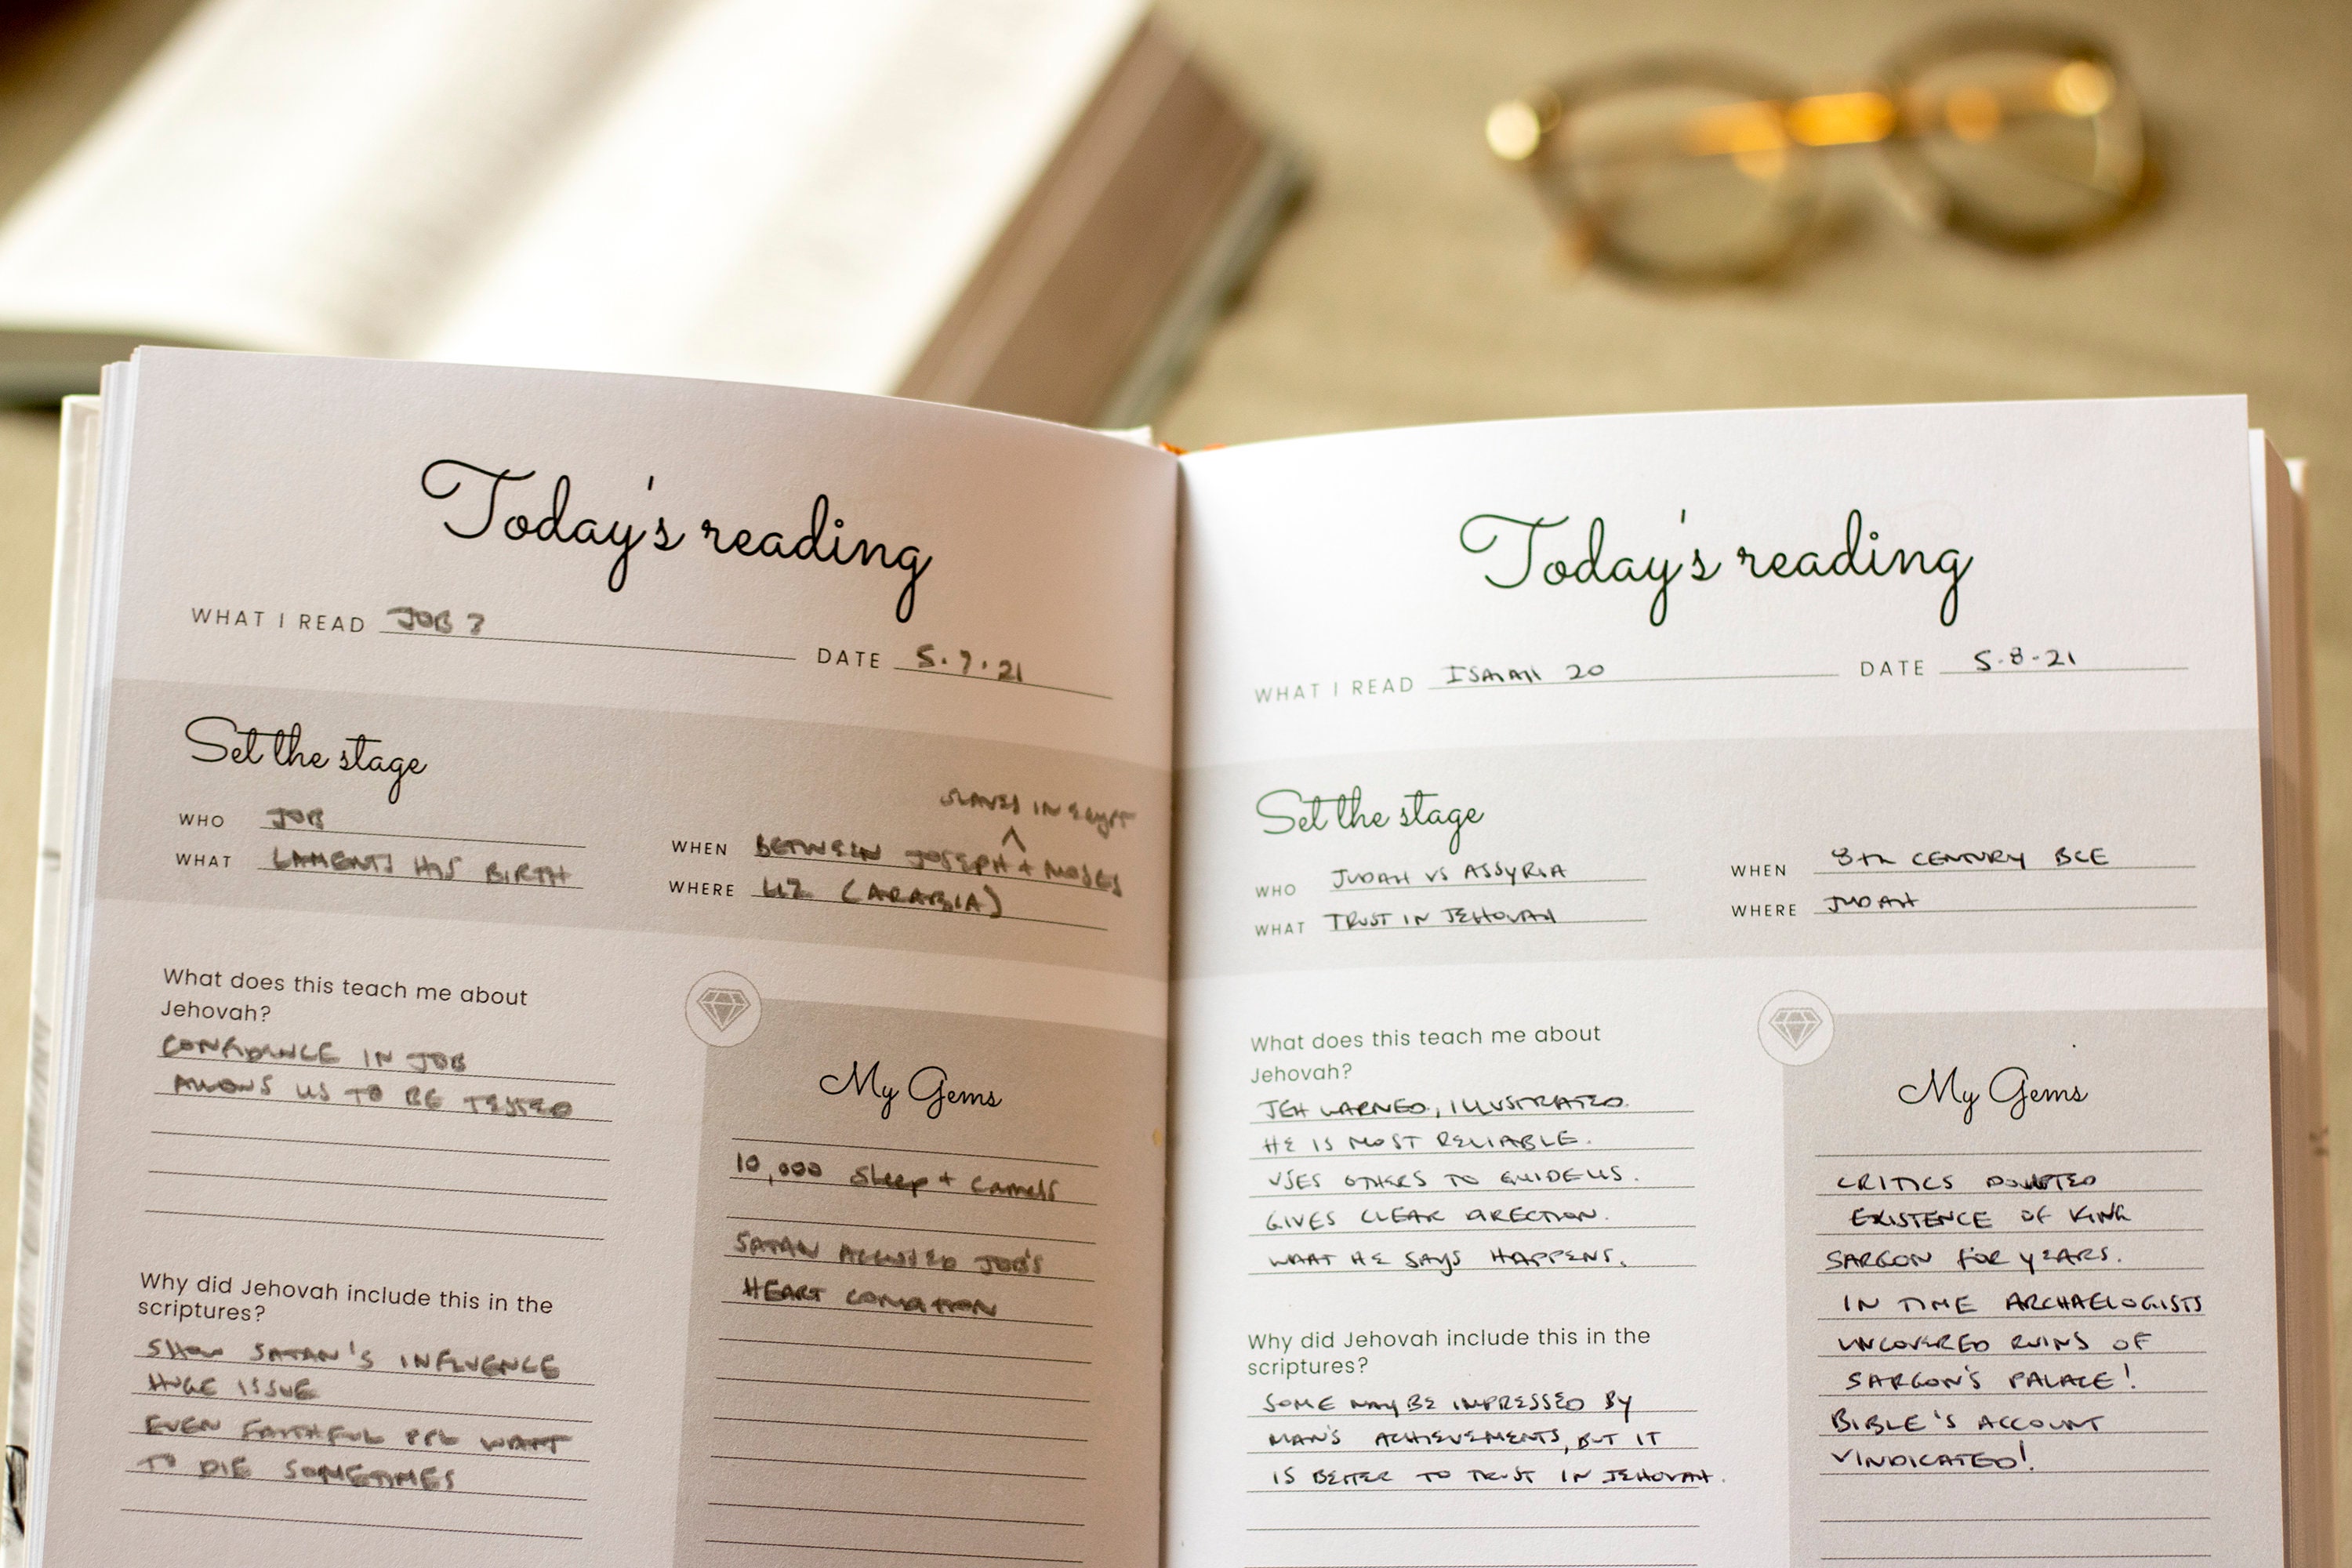 Today's reading
WHAT I READ JOB 3
DATE 5.7.21
Set the stage
WHO JOB
WHAT LAMENTS HIS BIRTH
SLAVES IN EGYPT
^
WHEN BETWEEN JOSEPH + MOSES
WHERE UZ (ARABIA)
What does this teach me about
Jehovah?
CONFIDENCE IN JOB
ALLOWS US TO BE TESTED
Why did Jehovah include this in the
scriptures?
SHOW SATAN'S INFLUENCE
HUGE ISSUE
EVEN FAITHFUL PPL WANT
TO DIE SOMETIMES
My Gems
10,000 Sheep + Camels
SATAN ACCUSED JOB'S
HEART CONDITION
Today's reading
WHAT I READ ISAIAH 20
DATE 5-8-21
Set the stage
WHO JUDAH VS ASSYRIA
WHAT TRUST IN JEHOVAH
WHEN 8th CENTURY BCE
WHERE JUDAH
What does this teach me about
Jehovah?
JEH WARNED, ILLUSTRATED.
HE IS MOST RELIABLE.
USES OTHERS TO GUIDE US.
GIVES CLEAR DIRECTION.
WHAT HE SAYS HAPPENS.
Why did Jehovah include this in the
scriptures?
SOME MAY BE IMPRESSED BY
MAN'S ACHIEVEMENTS, BUT IT
IS BETTER TO TRUST IN JEHOVAH.
My Gems
CRITICS DOUBTED
EXISTENCE OF KING
SARGON FOR YEARS.
IN TIME ARCHAELOGISTS
UNCOVERED RUINS OF
SARGON'S PALACE!
BIBLE'S ACCOUNT
VINDICATED!